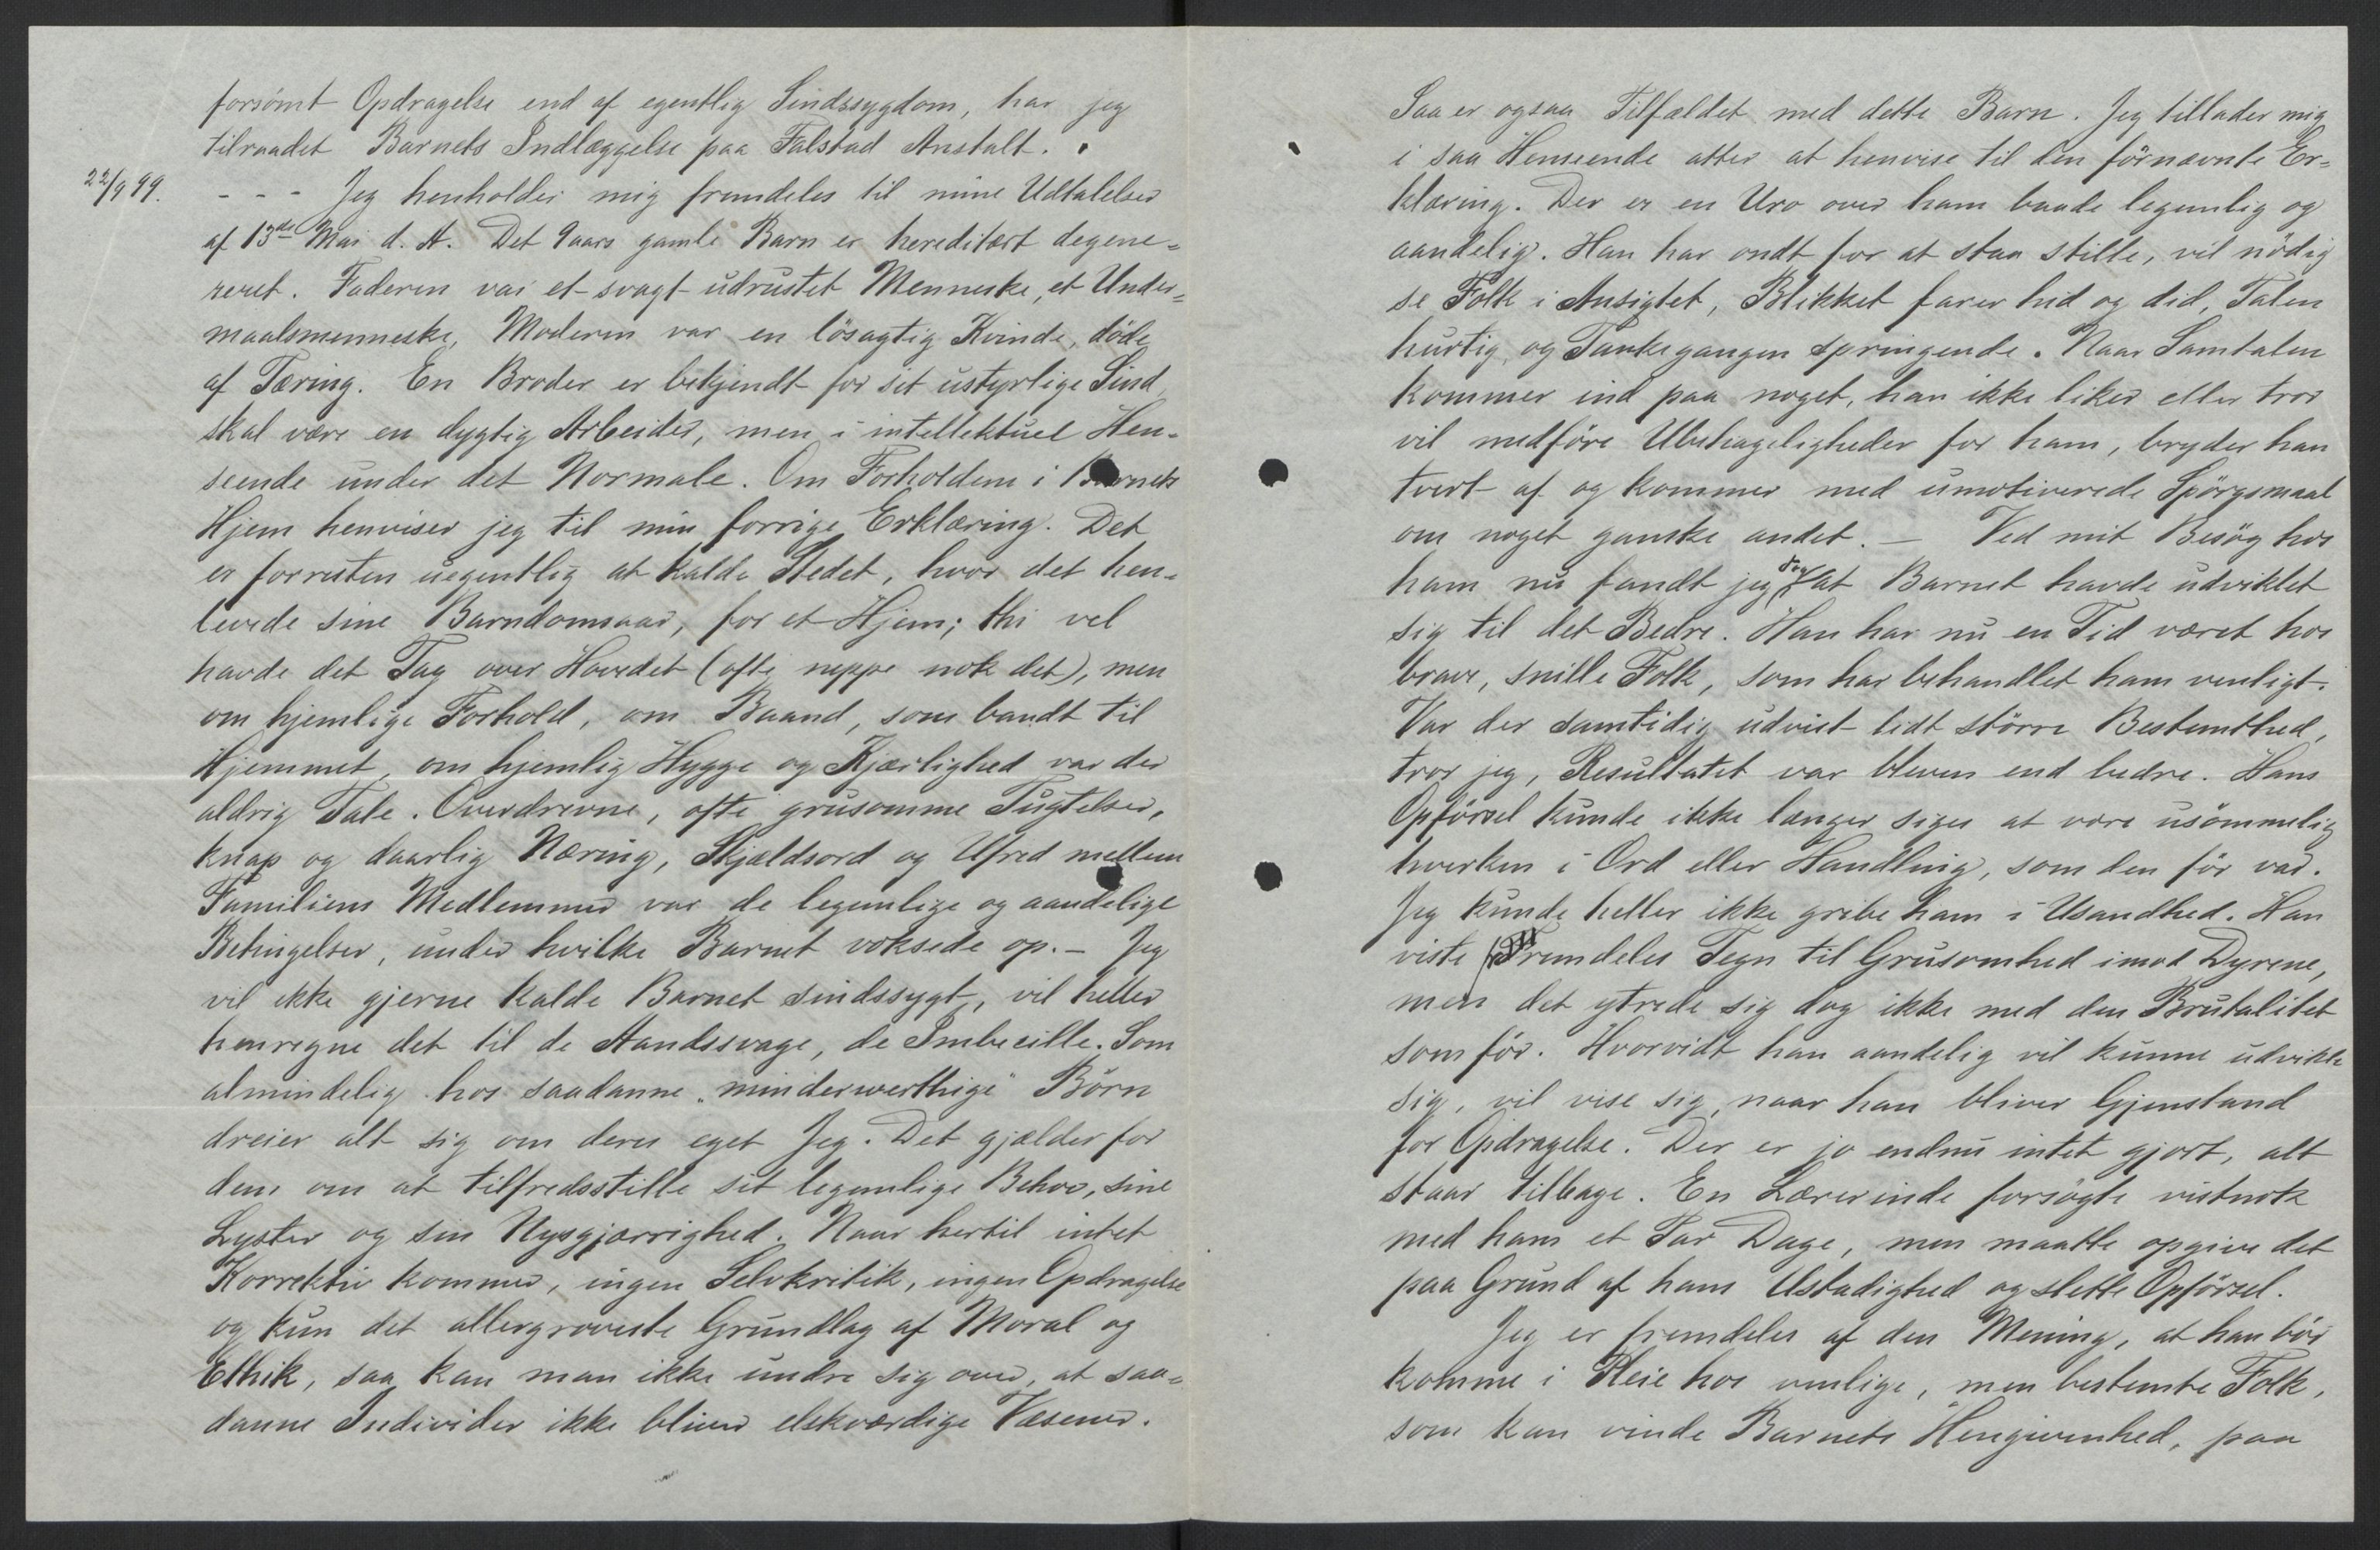 forsömt Opdragelse end af egentlig Sindssygdom, har jeg
tilraadet Barnets Indlæggelse paa Falstad Anstalt.
22/9 99. - - - Jeg henholder mig fremdeles til mine Udtalelser
af 13de Mai d. A. Det 9 aars gamle Barn er hereditært degene=
reret. Faderen var et svagt udrustet Menneske, et Under=
maalsmenneske, Moderen var en lösagtig Kvinde, döde
af Tæring. En Broder er bekjendt for sit ustyrlige Sind,
skal være en dygtig Arbeider, men i intellektuel Hen-
seende under det Normale. Om Forholdene i Barnets
Hjem henviser jeg til min forrige Erklæring. Det
er forresten uegentlig at kalde Stedet, hvor det hen-
levede sine Barndomsaar, for et Hjem; thi vel
havde det Tag over Hovedet (ofte neppe nok det), men
om hjemlige Forhold, om Baand, som bandt til
Hjemmet, om hjemlig Hygge og Kjærlighed var der
aldrig Tale. Overdrevne, ofte grusomme Tugtelser,
knap og daarlig Næring, Skjældsord og Ufred mellem
Familiens Medlemmer var de legemlige og aandelige
Betingelser, under hvilke Barnet voksede op. – Jeg
vil ikke gjerne kalde Barnet sindssygt, vil heller
henregne det til de Aandssvage, de Imbecille. Som
almindelig hos saadanne „minderwerthige" Börn
dreier alt sig om deres eget Jeg. Det gjælder for
dem om at tilfredsstille sit legemlige Behov, sine
Lyster og sin Nysgjærrighed. Naar hertil intet
Korrektiv kommer, ingen Selvkritik, ingen Opdragelse
og kun det allergroveste Grundlag af Moral og
Ethik, saa kan man ikke undre sig over, at saa=
danne Individer ikke bliver elskværdige Væsener.
Saa er ogsaa Tilfældet med dette Barn. Jeg tillader mig
i saa Henseende atter at henvise til den förnævnte Er=
klæring. Der er en Uro over ham baade legemlig og
aandelig. Han har ondt for at staa stille, vil nödig
se Folk i Ansigtet, Blikket farer hid og did, Talen
hurtig og Tankegangen springende. Naar Samtalen
kommer ind paa noget, han ikke liker eller tror
vil medföre Ubehageligheder for ham, bryder han
tvert af og kommer med umotiverede Spörgsmaal
om noget ganske andet. – Ved mit Besög hos
ham nu fandt jeg dog at Barnet havde udviklet
sig til det Bedre. Han har nu en Tid været hos
brave, snille Folk, som har behandlet ham venligt.
Var der samtidig udvist lidt större Bestemthed,
tror jeg, Resultatet var bleven end bedre. Hans
Opförsel kunde ikke længer siges at være usömmelig
hverken i Ord eller Handling, som den för var.
Jeg kunde heller ikke gribe ham i Usandhed. Han
viste fremdeles Tegn til Grusomhed imod Dyrene,
men det ytrede sig dog ikke med den Brutalitet
som för. Hvorvidt han aandelig vil kunne udvikle
sig, vil vise sig, naar han bliver Gjenstand
for Opdragelse. Der er jo endnu intet gjort, alt
staar tilbage. En Lærerinde forsögte vistnok
med ham et Par Dage, men maatte opgive det
paa Grund af hans Ustadighed og slette Opförsel.
Jeg er fremdeles af den Mening, at han bör
komme i Pleie hos venlige, men bestemte Folk,
som kan vinde Barnets Hengivenhed, paa